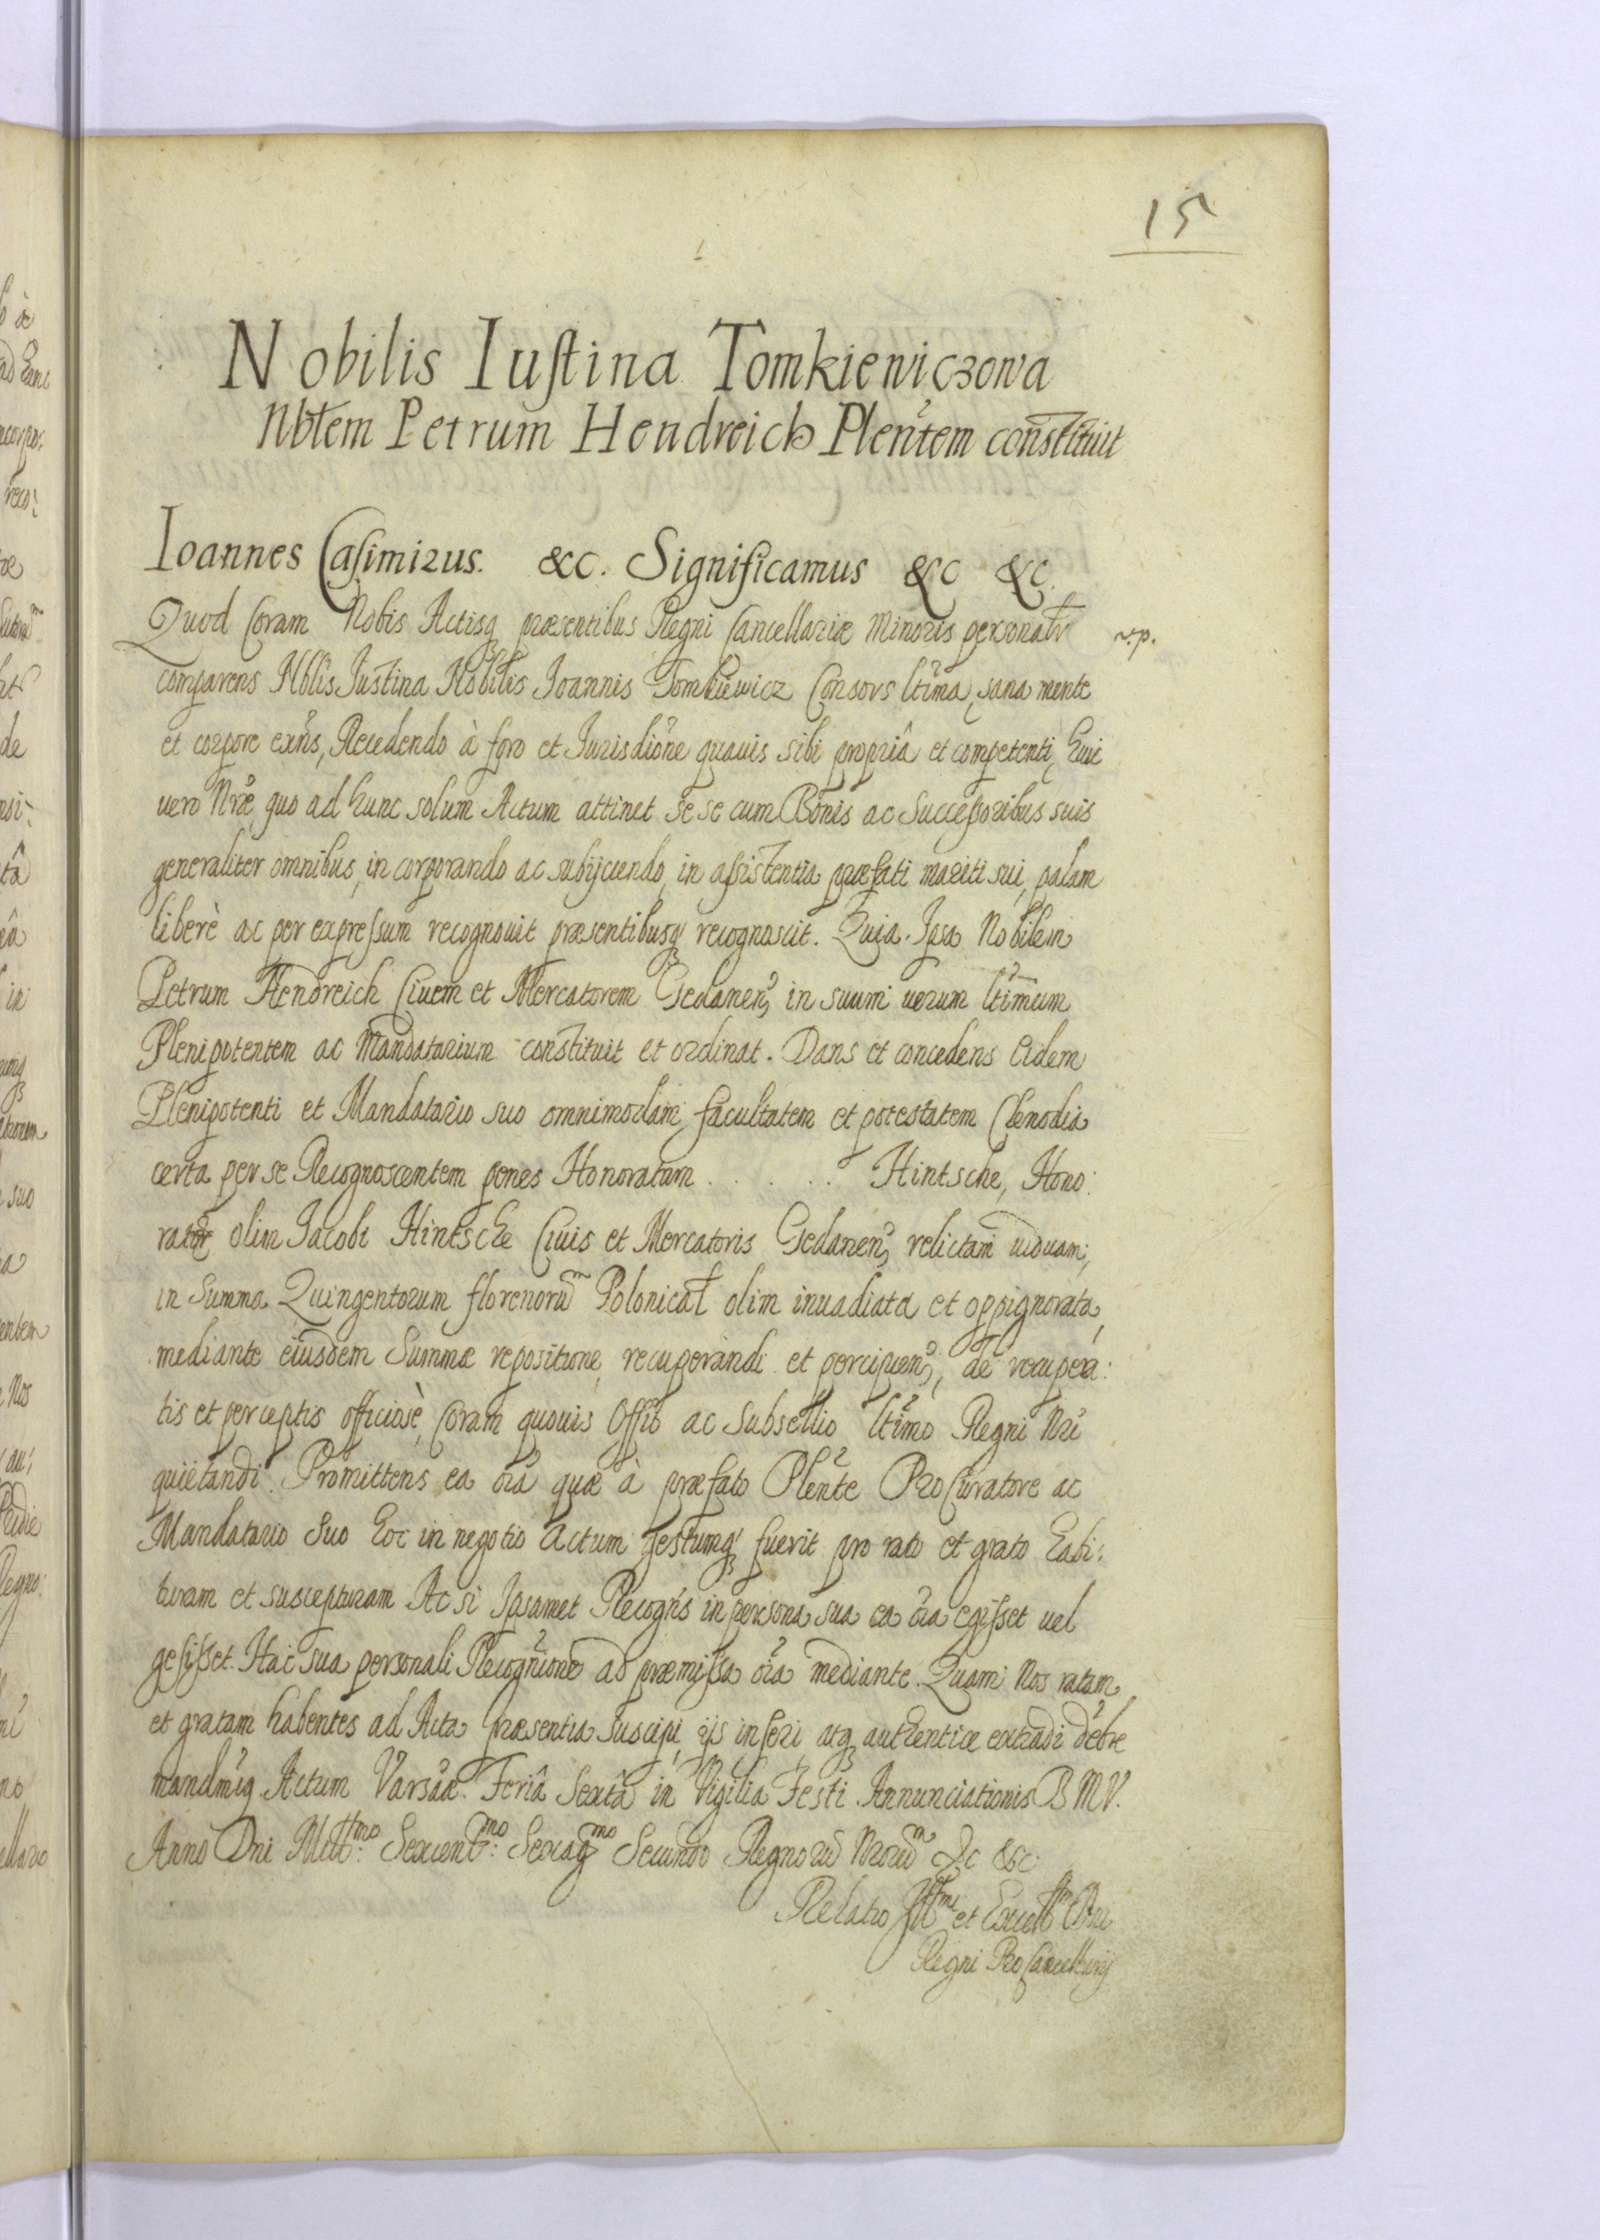 15
Nobilis Iustina Tomkiewiczowa
Nbłem Petrum Hendreich Plentem constituit
Ioannes Casimirus. &c. Significamus &c &c.
Quod Coram Nobis Actisq præsentibus Regni Cancellariæ Minoris personalr
comparens Nblis Justina Nobilis Joannis Tomkiewicz Consors ltima, sana mente
et corpore exns, Recedendo à foro et Jurisdione quavis sibi propriâ et competenti, huic
vero Nræ quo ad hunc solum Actum attinet se se cum Bonis ac Successoribus suis
generaliter omnibus, in corporando ac subijciendo, in assistentia præfati mariti sui, palam
liberè ac per expressum recognouit præsentibusq recognoscit. Quia Ipsa Nobilem
Petrum Hendreich Ciuem et Mercatorem Gedanen, in suum uerum ltimum
Plenipotentem ac Mandatarium constituit et ordinat. Dans et concedens Eidem
Plenipotenti et Mandatario suo omnimodam facultatem et potestatem Clenodia
certa per se Recognoscentem penes Honoratam . . . . . Hintsche, Hono:
rator olim Jacobi Hintsche Ciuis et Mercatoris Gedanen, relictam uiduam,
in Summa Quingentorum florenorum Polonical olim inuadiata et oppignorata,
mediante eiusdem Summæ repositione, recuperandi et percipien, de recupera:
tis et perceptis officiosè, Coram quouis Offio ac Subsellio ltimo Regni Nri
quietandi. Promittens ea oia quæ à præfato Plente Procuratore ac
Mandatario suo hoc in negotio actum gestumq fuerit pro rato et grato habi:
turam et suscepturam Ac si Ipsamet Recogns in persona sua ea oia egisset uel
gesisset. Hac sua personali Recognione ad præmissa oia mediante. Quam Nos ratam
et gratam habentes ad Acta præsentia suscipi, ijs inseri atq authentice extradi debre
mandmq. Actum Varsaæ. Feriâ Sextâ in Vigilia Festi Annunciationis B M V.
Anno Dni Mill:mo Sexcent:mo Sexag:mo Secundo Regnorum Nrorum &c &c
Relatio Ill:mi et Excell:mi Dni
Regni ProCancellarij